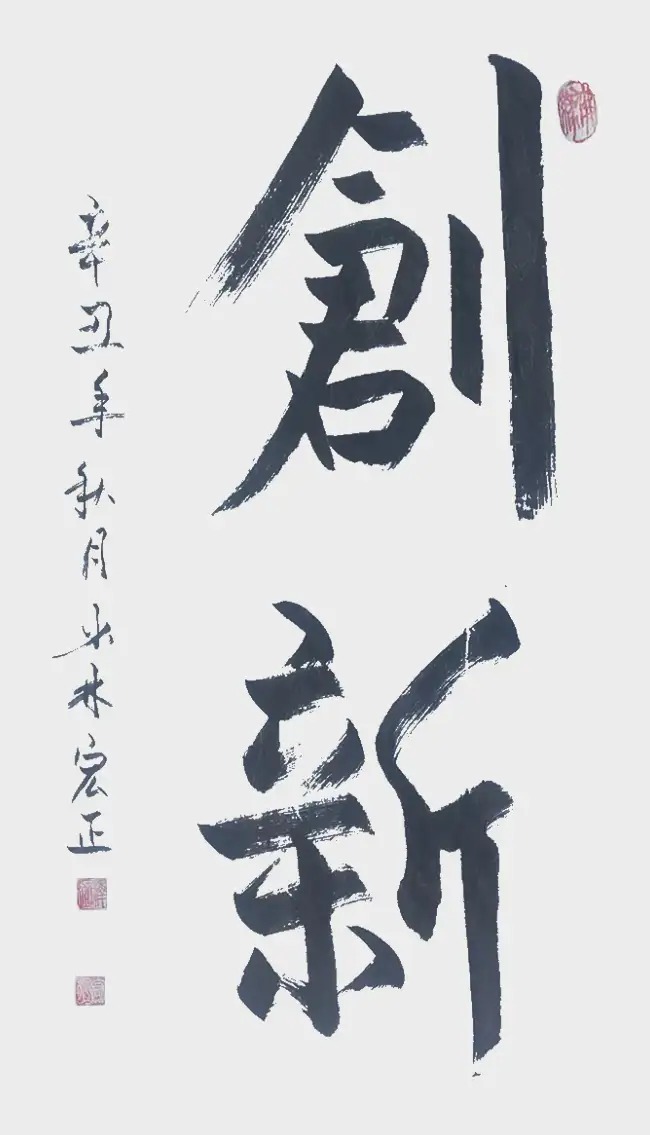 創新
辛丑年秋月小林宏正